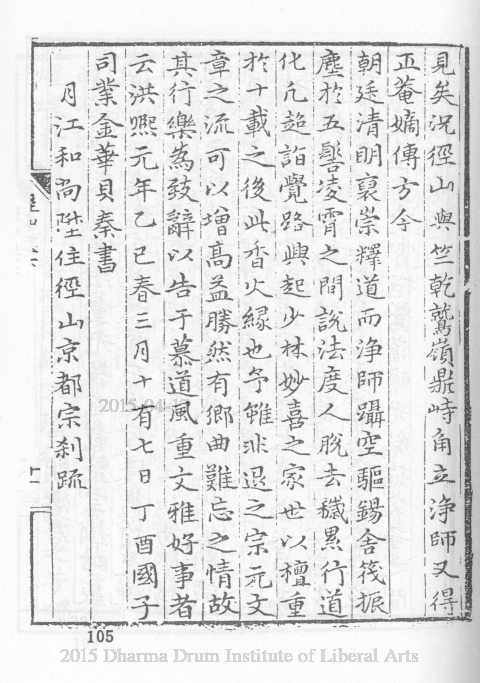 見矣況徑山與竺乾鷲嶺鼎峙角立淨師又得
正菴嫡傳方今
朝廷清明裒崇釋道而淨師躡空驅錫舍筏振
塵於五髻凌霄之間說法度人脫去穢累行道
化凡超詣覺路興起少林妙喜之家世以檀重
於十載之後此香火緣也予雖非退之宗元文
章之流可以增高益勝然有鄉曲難忘之情故
其行樂為致辭以告于慕道風重文雅好事者
云洪熙元年乙巳春三月十有七日丁酉國子
司業金華貝秦書
月江和尚陞住徑山京都宗剎疏
十一
105
2015 Dharma Drum Institute of Liberal Arts